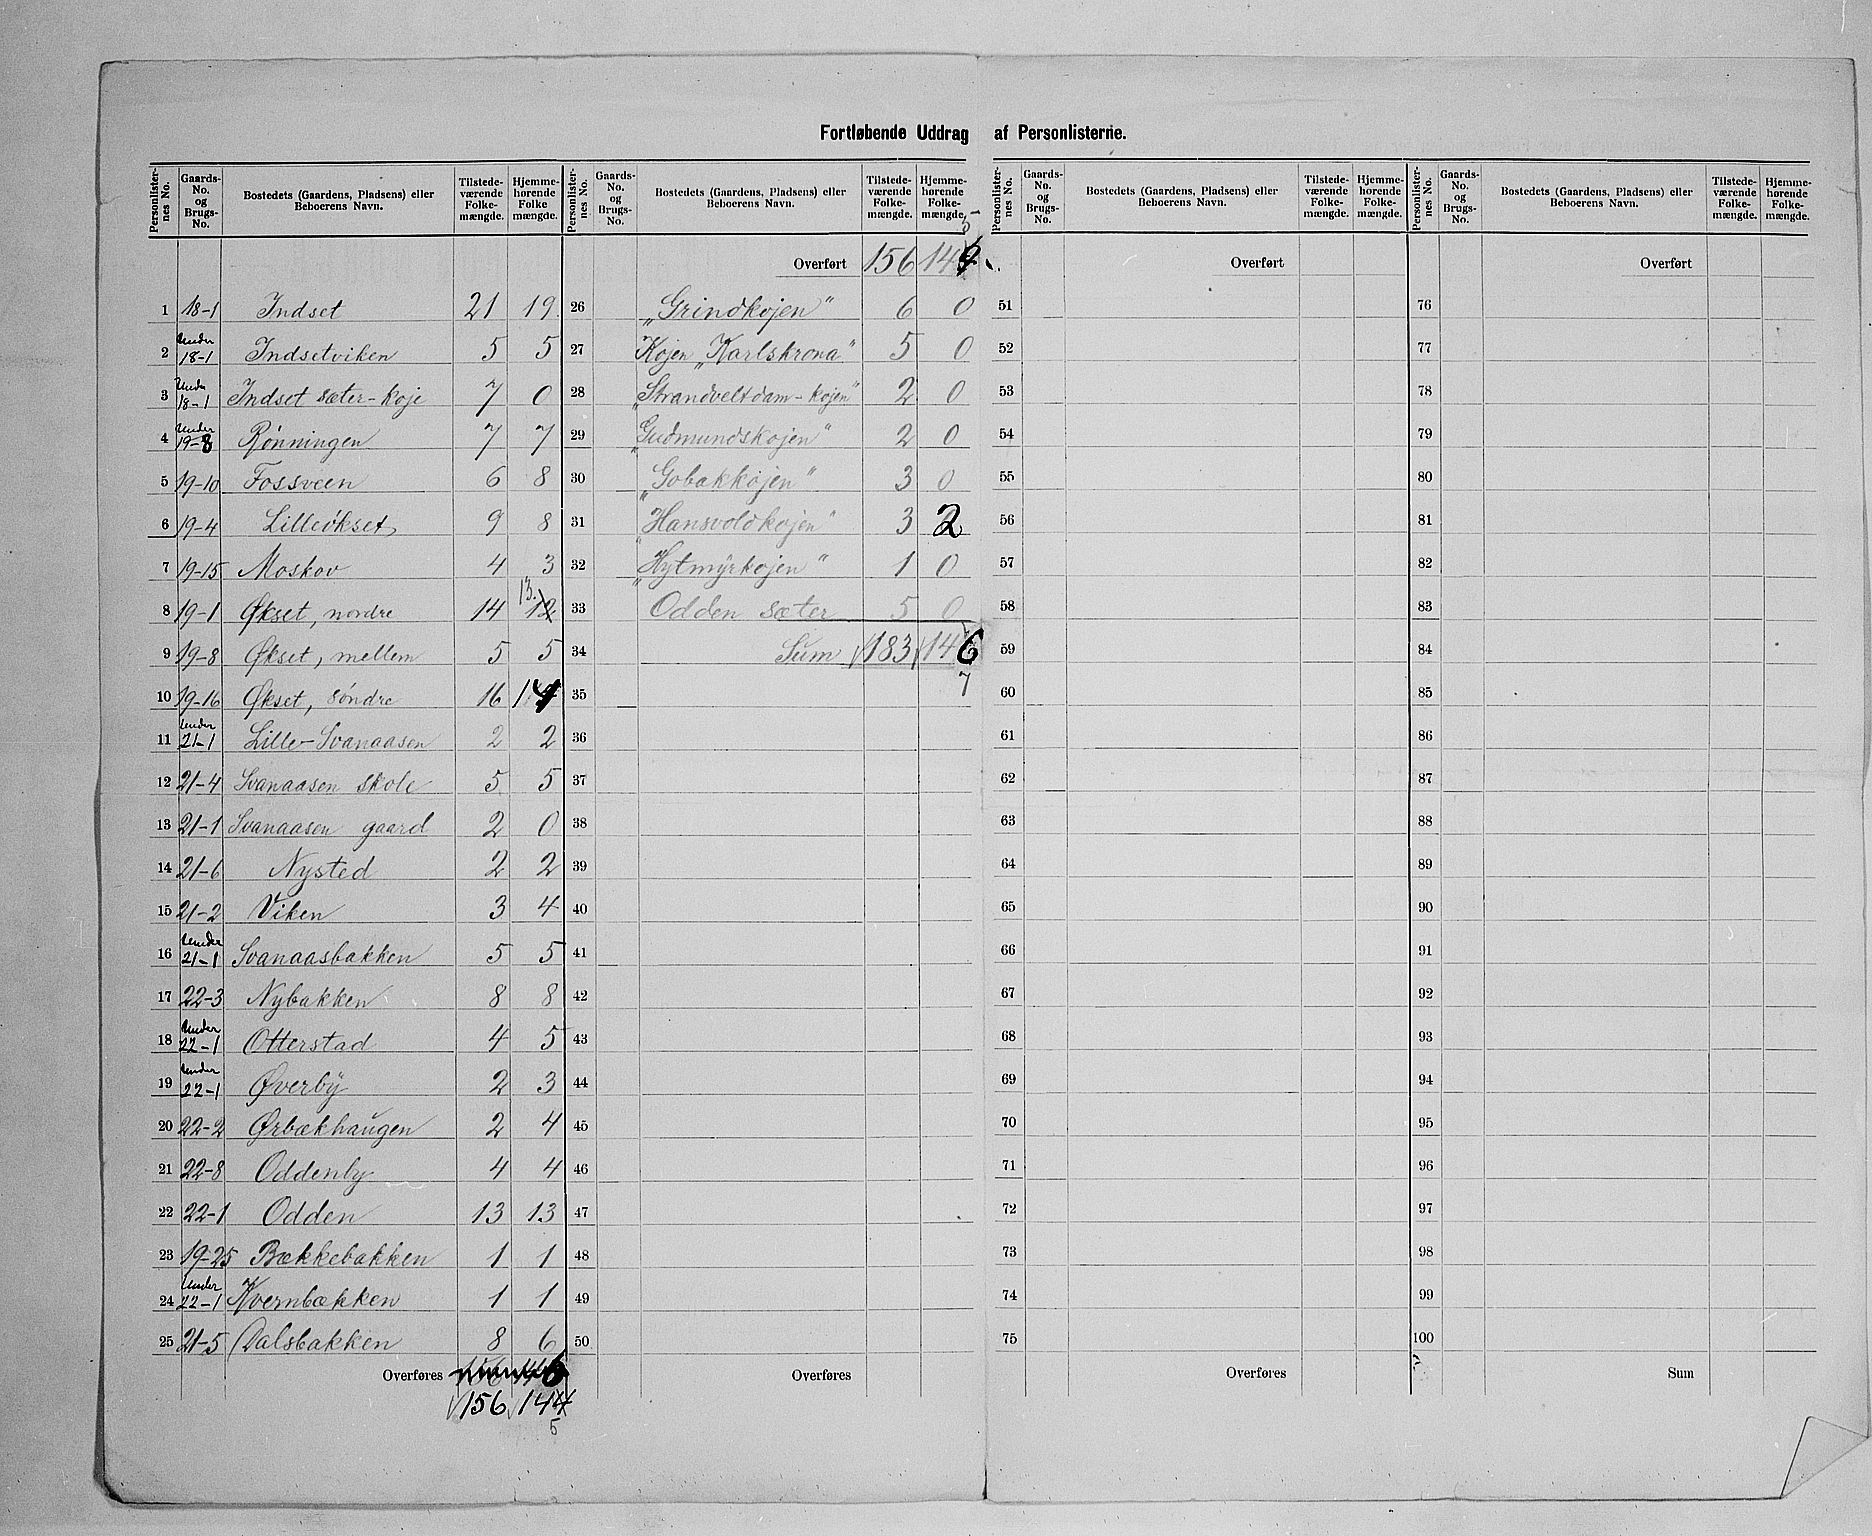 Fortløbende Uddrag af Personlisterne.
Personlister-nes No. Gaards-No. og Brugs-No. Bostedets (Gaardens, Pladsens) eller Beboerens Navn. Tilstede-værende Folke-mængde. Hjemme-hørende Folke mængde.
1 18-1 Indset 21 19
2 Under 18-1 Indsetviken 5 5
3 Under 18-1 Indset sæter-koje 7 0
4 Under 19-8 Rønningen 7 7
5 19-10 Fossveen 6 8
6 19-4 Lilleökset 9 8
7 19-15 Moskov 4 3
8 19-1 Økset, nordre 14 12 13.
9 19-8 Økset, mellem 5 5
10 19-16 Økset, söndre 16 14
11 Under 21-1 Lille-Svanaasen 2 2
12 21-4 Svanaasen skole 5 5
13 21-1 Svanaasen gaard 2 0
14 21-6 Nysted 2 2
15 21-2 Viken 3 4
16 Under 21-1 Svanaasbakken 5 5
17 22-3 Nybakken 8 8
18 Under 22-1 Otterstad 4 5
19 Under 22-1 Øverby 2 3
20 22-2 Ørbækhaugen 2 4
21 22-8 Oddenby 4 4
22 22-1 Odden 13 13
23 19-25 Bækkebakken 1 1
24 Under 22-1 Kvernbækken 1 1
25 21-5 Dalsbakken 8 6
Overføres 156
156 144
5
Personlister-nes No. Gaards-No. og Brugs-No. Bostedets (Gaardens, Pladsens) eller Beboerens Navn. Tilstede-værende Folke-mængde. Hjemme-hørende Folke-mængde.
5
Overført 156 144
26 "Grindkojen" 6 0
27 Kojen "Karlskrona" 5 0
28 "Strandveltdam-kojen" 2 0
29 "Gudmundskojen" 2 0
30 "Gobakkojen" 3 0
31 "Hansvoldkojen" 3 2
32 "Hytmyrkojen" 1 0
33 Odden sæter 5 0
34 Sum 183 146
7
35
36
37
38
39
40
41
42
43
44
45
46
47
48
49
50
Overføres
Personlister-nes No. Gaards-No. og Brugs-No. Bostedets (Gaardens, Pladsens) eller Beboerens Navn. Tilstede-værende Folke-mængde. Hjemme-hørende Folke-mængde.
Overført
51
52
53
54
55
56
57
58
59
60
61
62
63
64
65
66
67
68
69
70
71
72
73
74
75
Overføres
Personlister-nes No. Gaards-No. og Brugs-No. Bostedets (Gaardens, Pladsens) eller Beboerens Navn. Tilstede-værende Folke-mængde. Hjemme-hørende Folke-mængde.
Overført
76
77
78
79
80
81
82
83
84
85
86
87
88
89
90
91
92
93
94
95
96
97
98
99
100
Sum